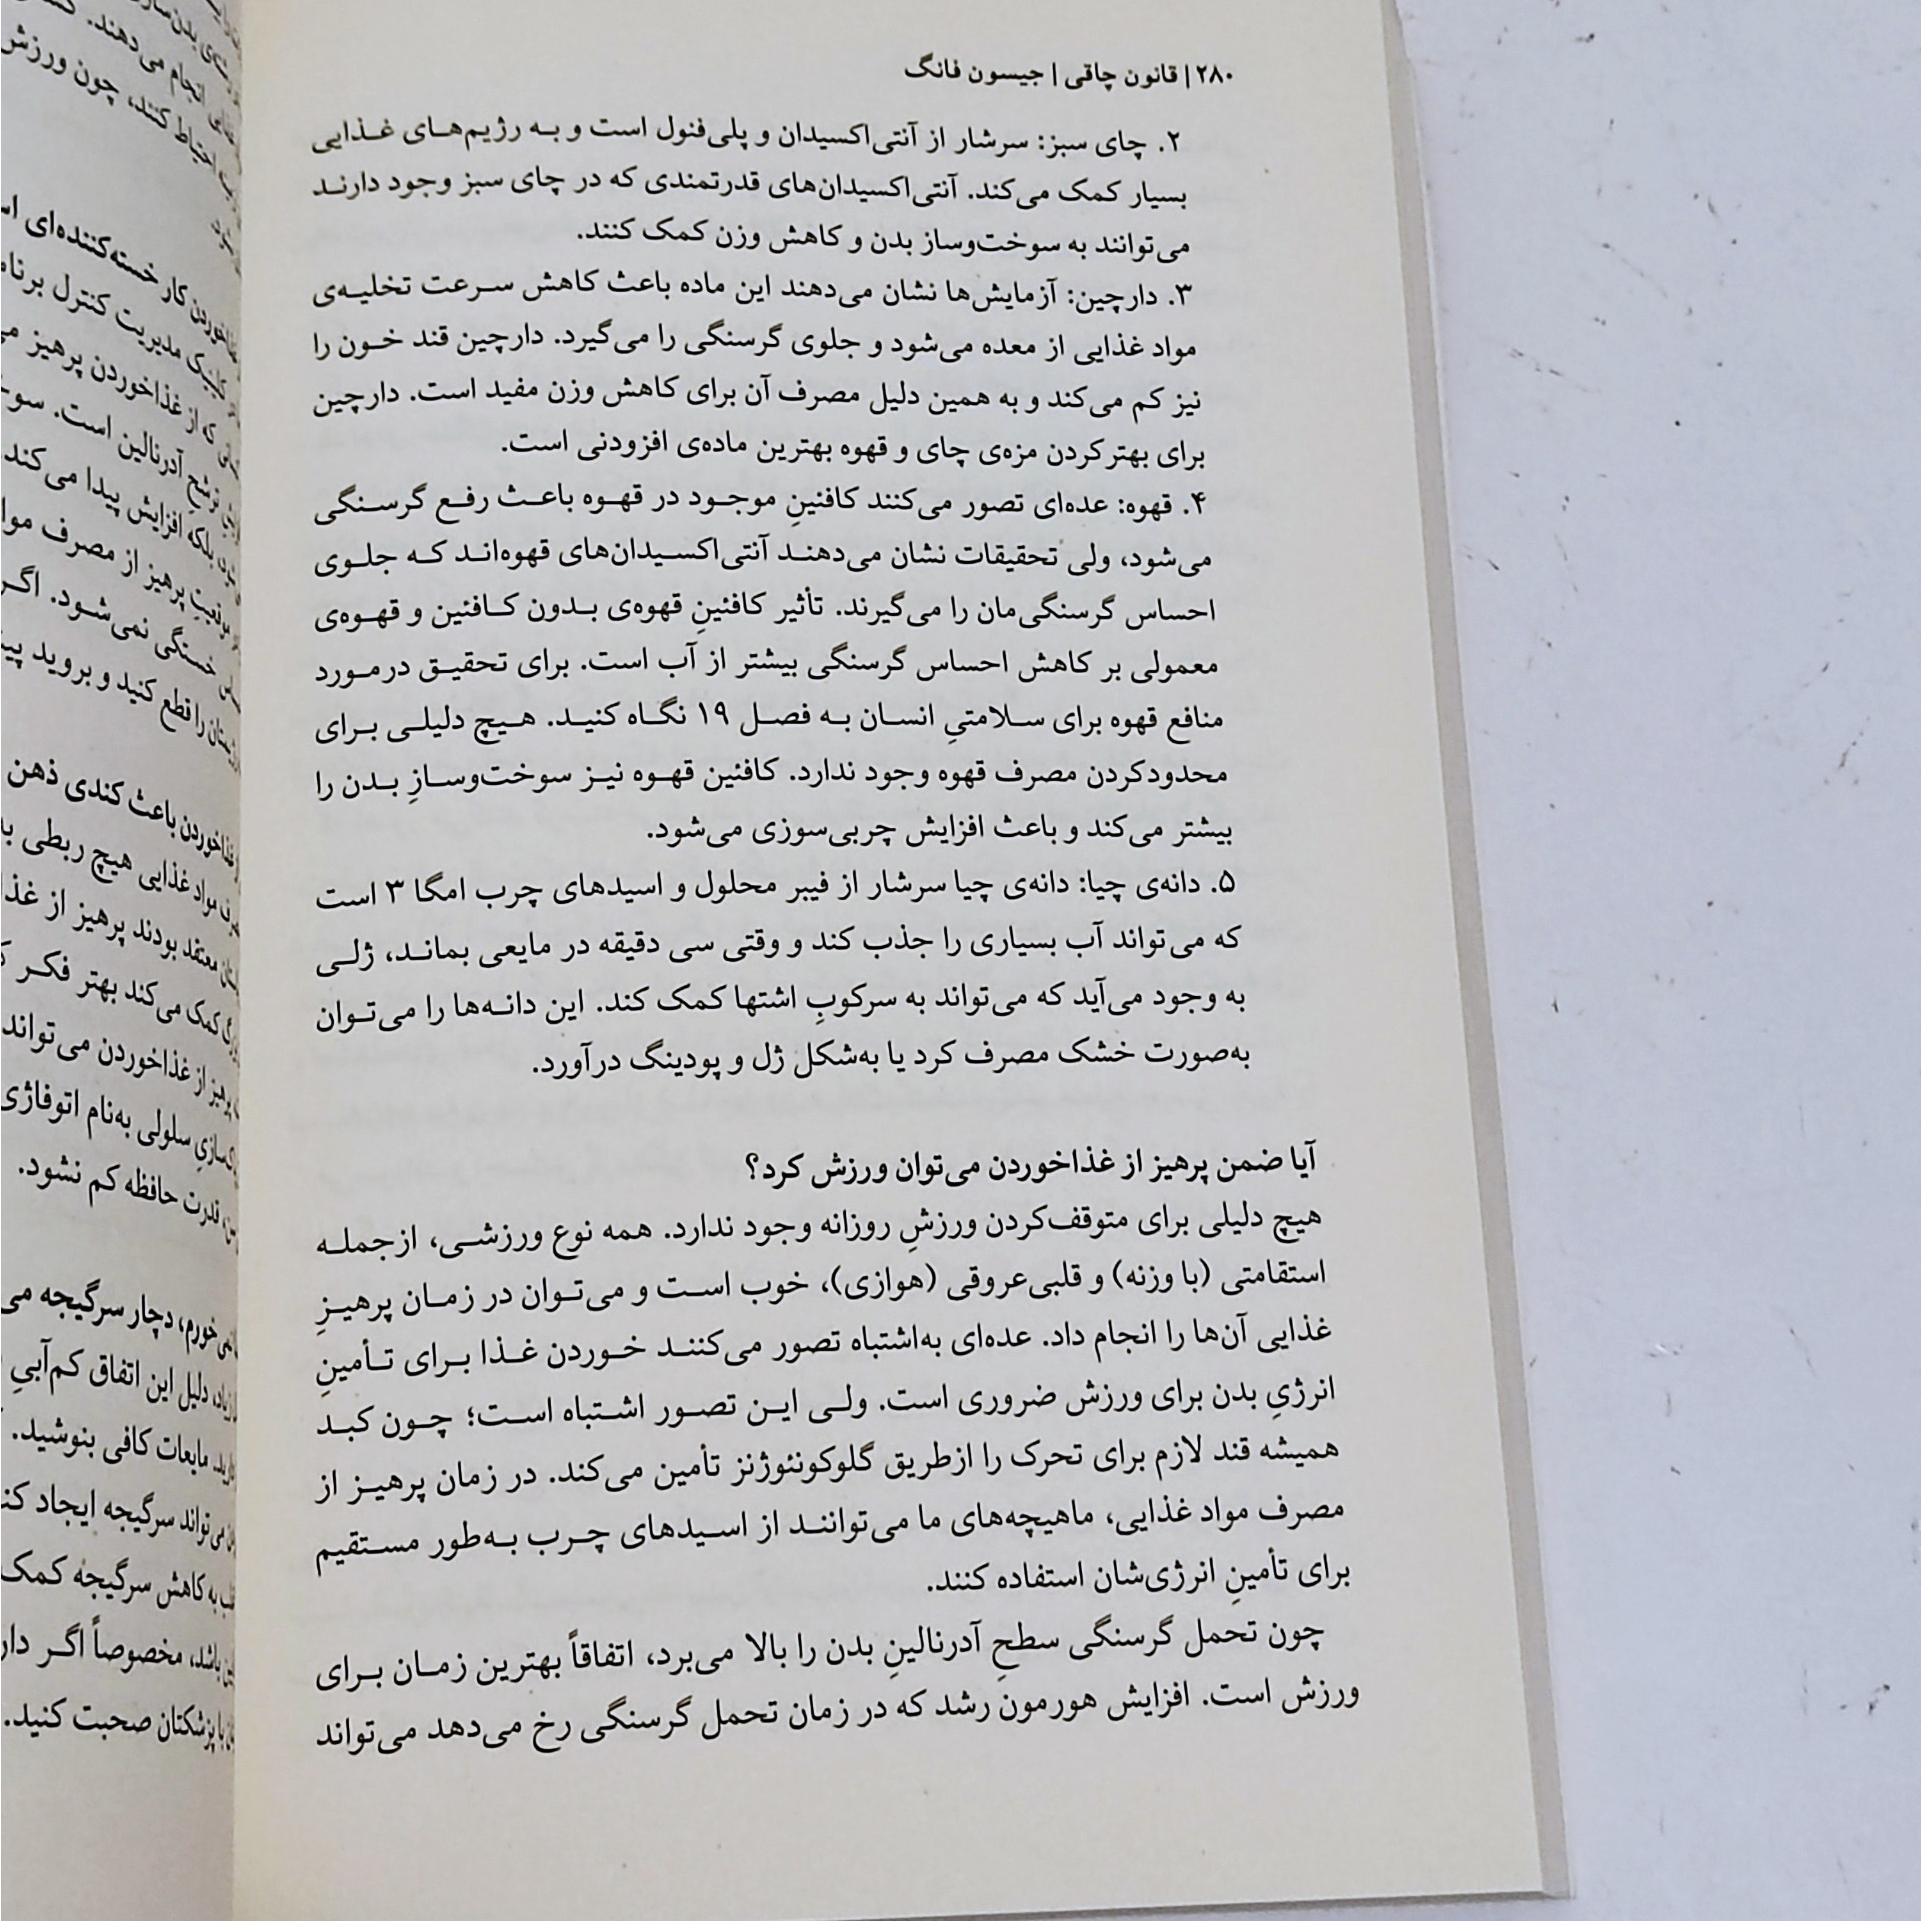 ۲۸۰ | قانون چاقی | جیسون فانگ
۲. چای سبز: سرشار از آنتی‌اکسیدان و پلی‌فنول است و به رژیم‌های غذایی
بسیار کمک می‌کند. آنتی‌اکسیدان‌های قدرتمندی که در چای سبز وجود دارند
می‌توانند به سوخت‌وساز بدن و کاهش وزن کمک کنند.
۳. دارچین: آزمایش‌ها نشان می‌دهند این ماده باعث کاهش سرعت تخلیه‌ی
مواد غذایی از معده می‌شود و جلوی گرسنگی را می‌گیرد. دارچین قند خون را
نیز کم می‌کند و به همین دلیل مصرف آن برای کاهش وزن مفید است. دارچین
برای بهترکردن مزه‌ی چای و قهوه بهترین ماده‌ی افزودنی است.
۴. قهوه: عده‌ای تصور می‌کنند کافئینِ موجود در قهوه باعث رفع گرسنگی
می‌شود، ولی تحقیقات نشان می‌دهند آنتی‌اکسیدان‌های قهوه‌اند که جلوی
احساس گرسنگی‌مان را می‌گیرند. تأثیر کافئینِ قهوه‌ی بدون کافئین و قهوه‌ی
معمولی بر کاهش احساس گرسنگی بیشتر از آب است. برای تحقیق درمورد
منافع قهوه برای سلامتیِ انسان به فصل ۱۹ نگاه کنید. هیچ دلیلی برای
محدودکردن مصرف قهوه وجود ندارد. کافئین قهوه نیز سوخت‌وسازِ بدن را
بیشتر می‌کند و باعث افزایش چربی‌سوزی می‌شود.
۵. دانه‌ی چیا: دانه‌ی چیا سرشار از فیبر محلول و اسیدهای چرب امگا ۳ است
که می‌تواند آب بسیاری را جذب کند و وقتی سی دقیقه در مایعی بماند، ژلی
به وجود می‌آید که می‌تواند به سرکوبِ اشتها کمک کند. این دانه‌ها را می‌توان
به‌صورت خشک مصرف کرد یا به‌شکل ژل و پودینگ درآورد.
آیا ضمن پرهیز از غذاخوردن می‌توان ورزش کرد؟
هیچ دلیلی برای متوقف‌کردن ورزشِ روزانه وجود ندارد. همه نوع ورزشی، ازجمله
استقامتی (با وزنه) و قلبی‌عروقی (هوازی)، خوب است و می‌توان در زمان پرهیزِ
غذایی آن‌ها را انجام داد. عده‌ای به‌اشتباه تصور می‌کنند خوردن غذا برای تأمینِ
انرژیِ بدن برای ورزش ضروری است. ولی این تصور اشتباه است؛ چون کبد
همیشه قند لازم برای تحرک را ازطریق گلوکونئوژنز تأمین می‌کند. در زمان پرهیز از
مصرف مواد غذایی، ماهیچه‌های ما می‌توانند از اسیدهای چرب به‌طور مستقیم
برای تأمینِ انرژی‌شان استفاده کنند.
چون تحمل گرسنگی سطحِ آدرنالینِ بدن را بالا می‌برد، اتفاقاً بهترین زمان برای
ورزش است. افزایش هورمون رشد که در زمان تحمل گرسنگی رخ می‌دهد می‌تواند
انجام می‌دهند.
احتیاط کنند، چون ورزش
کار خسته‌کننده‌ای
مدیریت کنترل
که از غذاخوردن پرهیز
ترشح آدرنالین است.
بلکه افزایش پیدا می‌کند
پرهیز از مصرف
خستگی نمی‌شود. اگر
را قطع کنید و بروید
باعث کندی ذهن
مواد غذایی هیچ ربطی
معتقد بودند پرهیز از
کمک می‌کند بهتر فکر
پرهیز از غذاخوردن می‌تواند
سلولی به‌نام اتوفاژی
قدرت حافظه کم نشود.
دچار سرگیجه
دلیل این اتفاق کم‌آبیِ
مایعات کافی بنوشید.
می‌تواند سرگیجه ایجاد
به کاهش سرگیجه کمک
باشد، مخصوصاً اگر
با پزشکتان صحبت کنید.